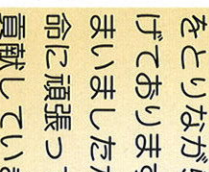 をとりながら
げております
まいました
命に頑張っ
貢献してい